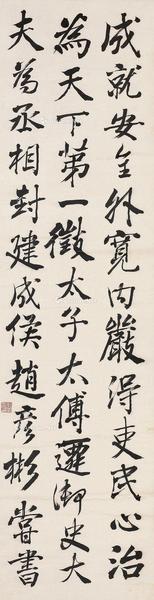 成就安全外寬內嚴得吏民心治
為天下第一徵太子太傅遷御史大
夫為丞相封建成侯趙彥彬嘗書